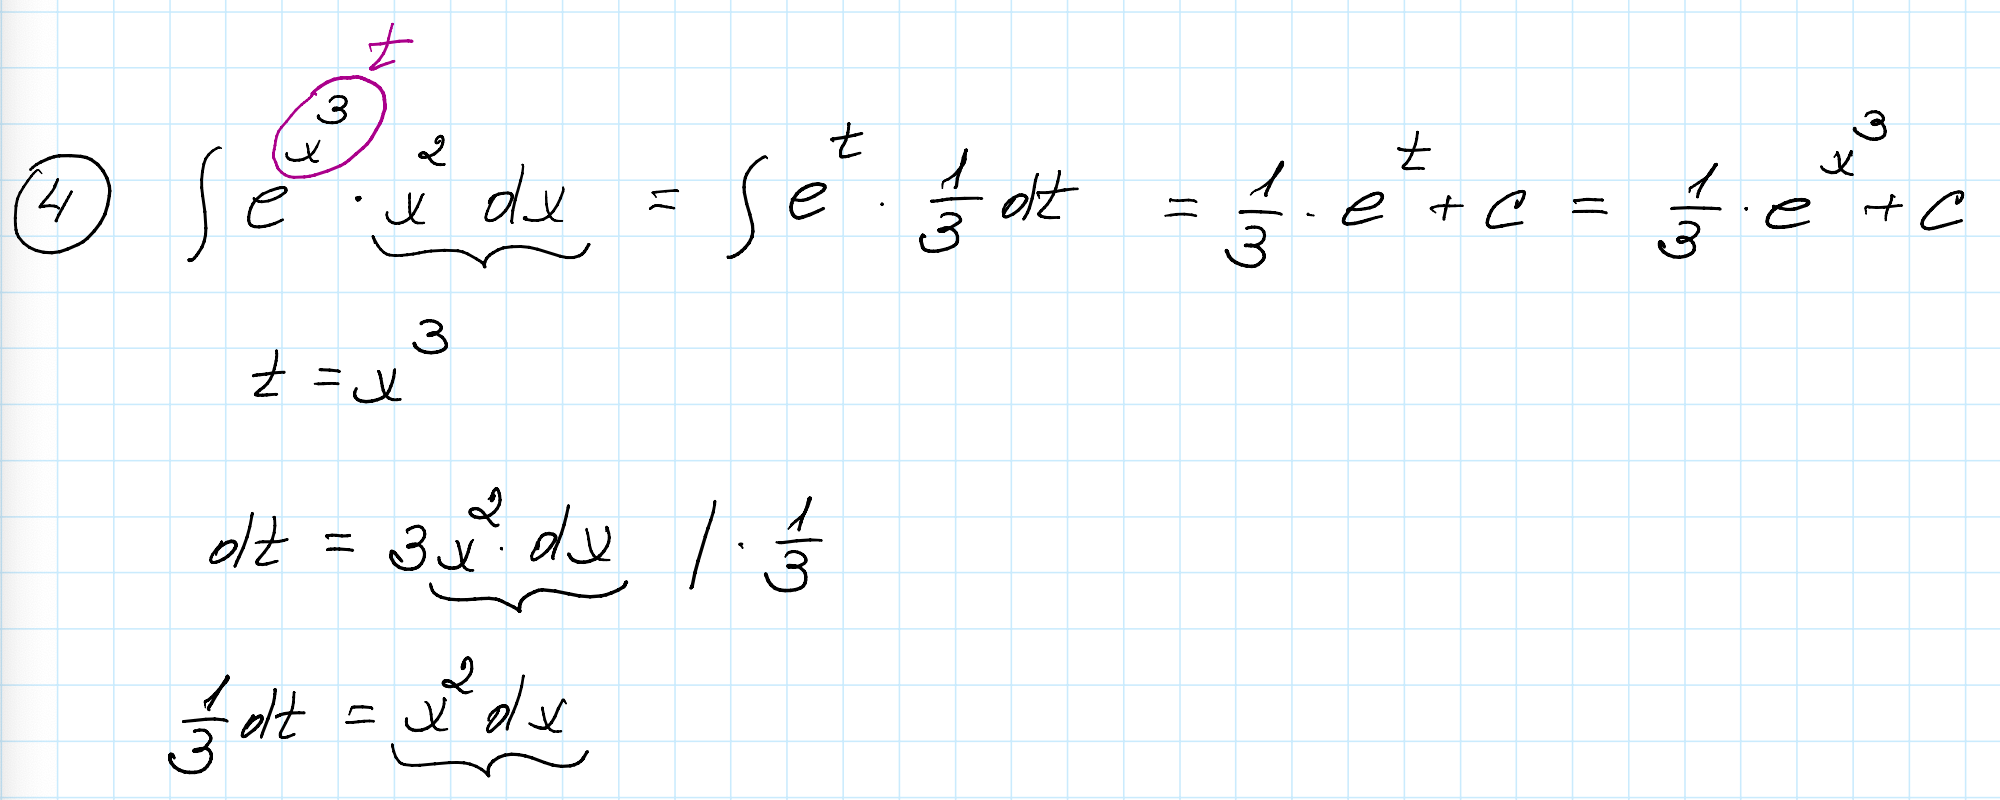 t
④ ∫ e^{x^3} · x^2 dx = ∫ e^t · 1/3 dt = 1/3 · e^t + c = 1/3 · e^{x^3} + c
t = x^3
dt = 3x^2 · dx / · 1/3
1/3 dt = x^2 dx